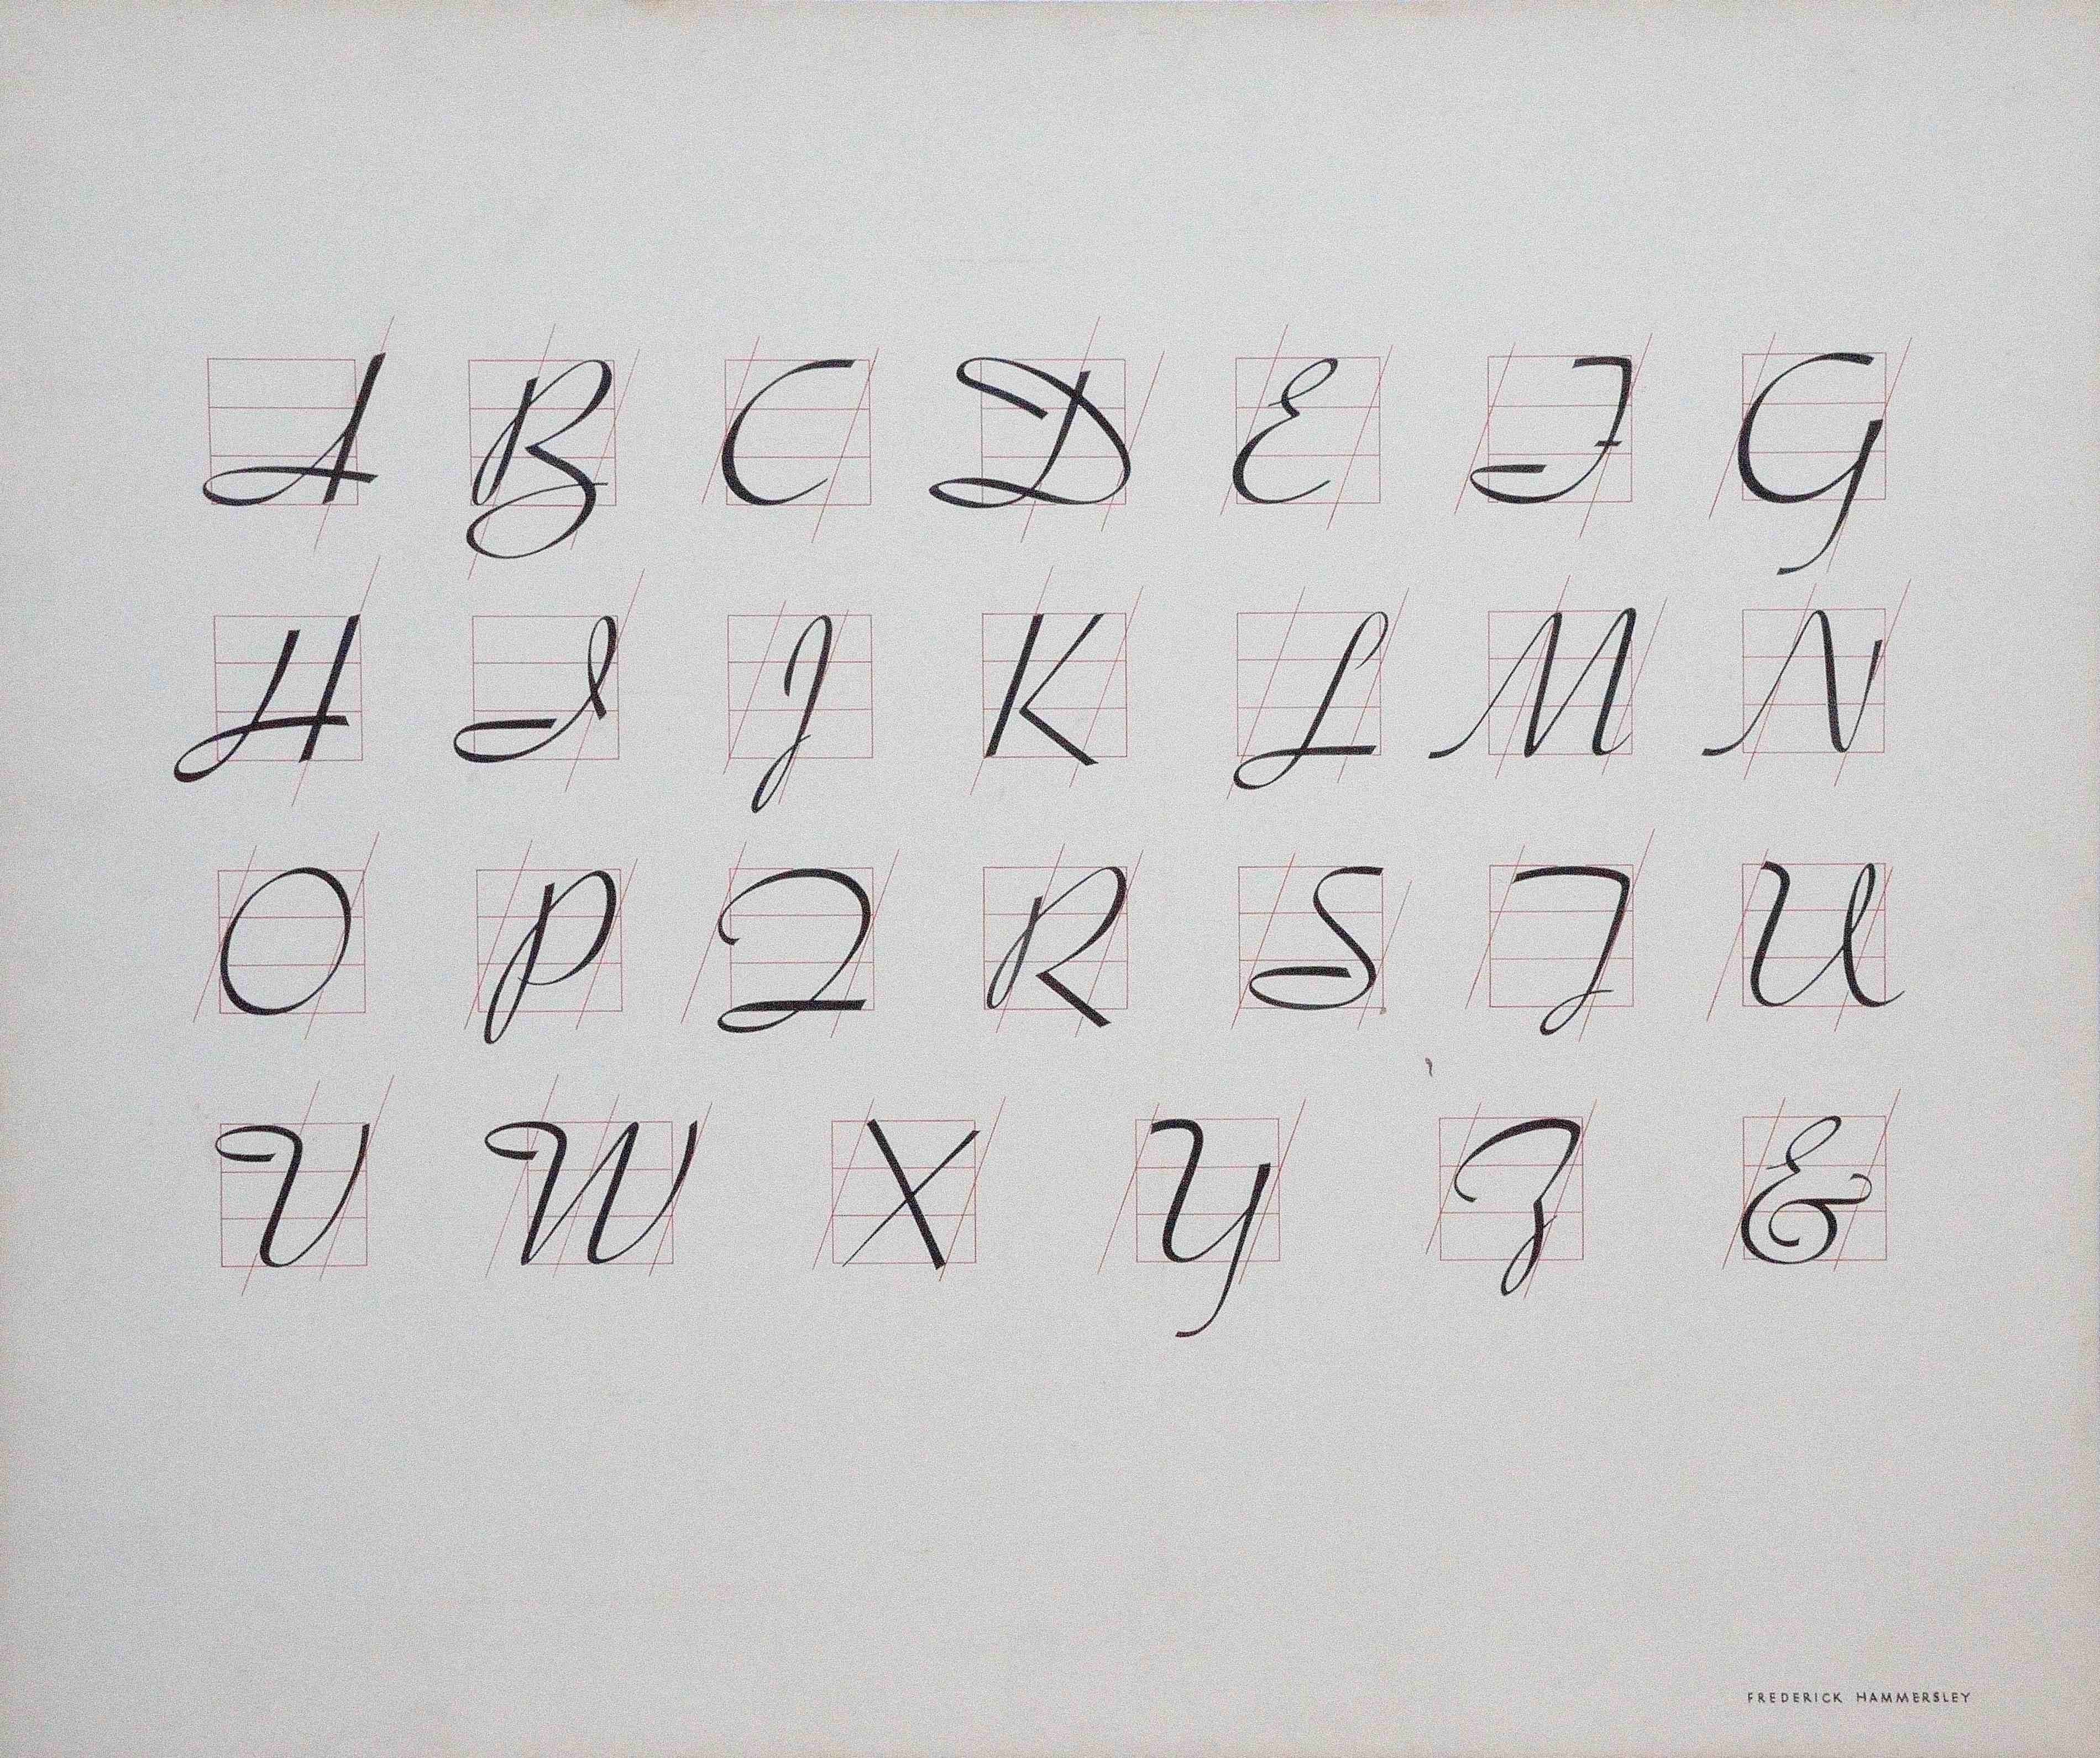 A B C D E F G
H I J K L M N
O P Q R S T U
V W X Y Z &
FREDERICK HAMMERSLEY